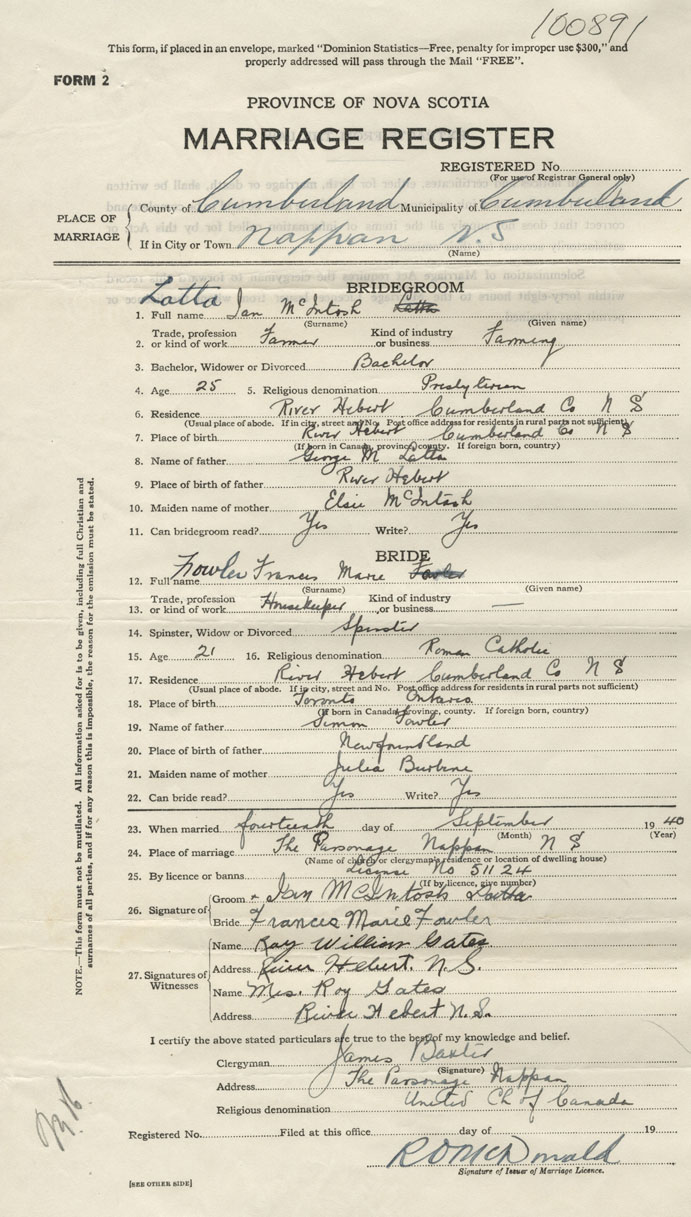 100891
This form, if placed in an envelope, marked "Dominion Statistics—Free, penalty for improper use $300," and
properly addressed will pass through the Mail "FREE".
FORM 2
PROVINCE OF NOVA SCOTIA
MARRIAGE REGISTER
REGISTERED No.
(For use of Registrar General only)
PLACE OF MARRIAGE
County of Cumberland Municipality of Cumberland
If in City or Town Nappan N.S
(Name)
BRIDEGROOM
1. Full name Latta Ian McIntosh Latta
(Surname) (Given name)
2. Trade, profession or kind of work Farmer Kind of industry or business Farming
3. Bachelor, Widower or Divorced Bachelor
4. Age 25 5. Religious denomination Presbyterian
6. Residence River Hebert Cumberland Co N S
(Usual place of abode. If in city, street and No. Post office address for residents in rural parts not sufficient)
7. Place of birth River Hebert Cumberland Co N S
(If born in Canada, province, county. If foreign born, country)
8. Name of father George M Latta
9. Place of birth of father River Hebert
10. Maiden name of mother Elsie McIntosh
11. Can bridegroom read? Yes Write? Yes
BRIDE
12. Full name Fowler Frances Marie Fowler
(Surname) (Given name)
13. Trade, profession or kind of work Housekeeper Kind of industry or business —
14. Spinster, Widow or Divorced Spinster
15. Age 21 16. Religious denomination Roman Catholic
17. Residence River Hebert Cumberland Co N S
(Usual place of abode. If in city, street and No. Post office address for residents in rural parts not sufficient)
18. Place of birth Toronto Ontario
(If born in Canada, province, county. If foreign born, country)
19. Name of father Simon Fowler
20. Place of birth of father Newfoundland
21. Maiden name of mother Julia
22. Can bride read? Yes Write? Yes
23. When married fourteenth day of September 1940
(Month) (Year)
24. Place of marriage The Parsonage Nappan N S
(Name of church or clergyman's residence or location of dwelling house)
25. By licence or banns License No 51124
(If by licence, give number)
26. Signature of
Groom Ian McIntosh Latta
Bride Frances Marie Fowler
27. Signatures of Witnesses
Name Roy William Gates
Address River Hebert. N.S.
Name Mrs. Roy Gates
Address River Hebert N.S.
I certify the above stated particulars are true to the best of my knowledge and belief.
Clergyman James Baxter
(Signature)
Address The Parsonage Nappan
Religious denomination United Ch of Canada
Registered No. Filed at this office day of 19
Signature of Issuer of Marriage Licence.
[SEE OTHER SIDE]
NOTE.—This form must not be mutilated. All information asked for is to be given, including full Christian and
surnames of all parties, and if for any reason this is impossible, the reason for the omission must be stated.